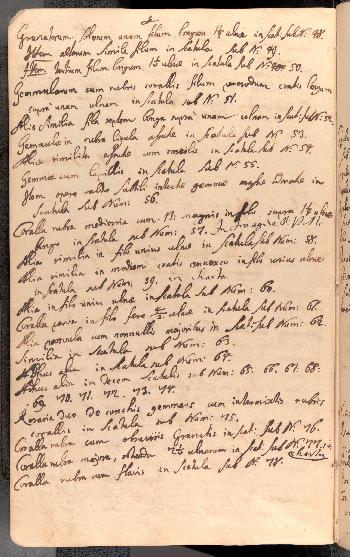 Granatorum filorum unum filum longum 1½ ulnæ in scat: sub N: 48.
Item alterum simile filum in scatula sub N: 49.
Item tertium filum longum 1½ ulnæ in scatula sub N: 50.
Gemmularum cum rubris corallis filum longum
supra unam ulnam in scatula sub N: 51.
Alia similia fila septem longa supra unam ulnam in scat: sub N: 52.
Gemmulæ in rubra ligula in scatula sub N: 53.
Aliæ similiter cum in scatula sub N: 54.
Gemmæ cum in scatula sub N: 55.
Item opere valde subtili gemmæ in
scatula sub Num: 56.
Coralla rubra mediocria cum 13. magnis in filo supra 1½ ulnæ
longo in scatula sub Num: 57.
Alia similia in filo unius ulnæ in scatula sub Num: 58.
Alia similia in modum cratis connexa in filo unius ulnæ
in scatula sub Num: 59. in charta
Alia in filo unius ulnæ in scatula sub Num: 60.
Coralla in filo fere ulnæ in scatula sub Num: 61.
Alia cum nonnullis majoribus in scat: sub Num: 62.
Similia in scatula sub Num: 63.
Adhuc alia in scatula sub Num: 64.
Adhuc alia in decem scatulis sub Num: 65. 66. 67. 68.
69. 70. 71. 72. 73. 74.
Rosaria duo de conchis gemmeis cum intermixtis rubris
corallis in scatula sub Num: 75.
Coralla rubra cum obscuris Granatis in scat: sub N: 76.
Coralla rubra majora, ulnarum in scat: sub N: 77. in
charta
Coralla rubra cum flavis in scatula sub N: 78.